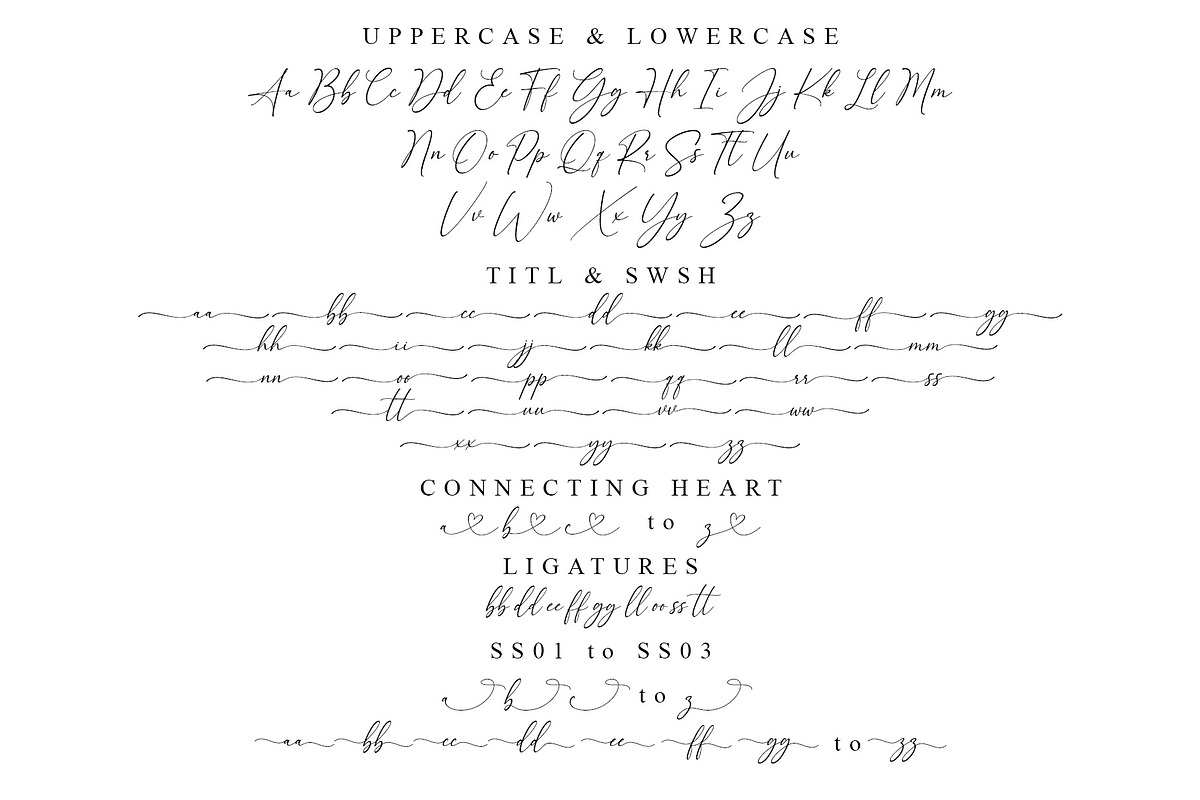 UPPERCASE & LOWERCASE
Aa Bb Cc Dd Ee Ff Gg Hh Ii Jj Kk Ll Mm
Nn Oo Pp Qq Rr Ss Tt Uu
Vv Ww Xx Yy Zz
TITL & SWSH
aa bb cc dd ee ff gg
hh ii jj kk ll mm
nn oo pp qq rr ss
tt uu vv ww
xx yy zz
CONNECTING HEART
a b c to z
LIGATURES
bb dd ee ff gg ll oo ss tt
SS01 to SS03
a b c to z
aa bb cc dd ee ff gg to zz